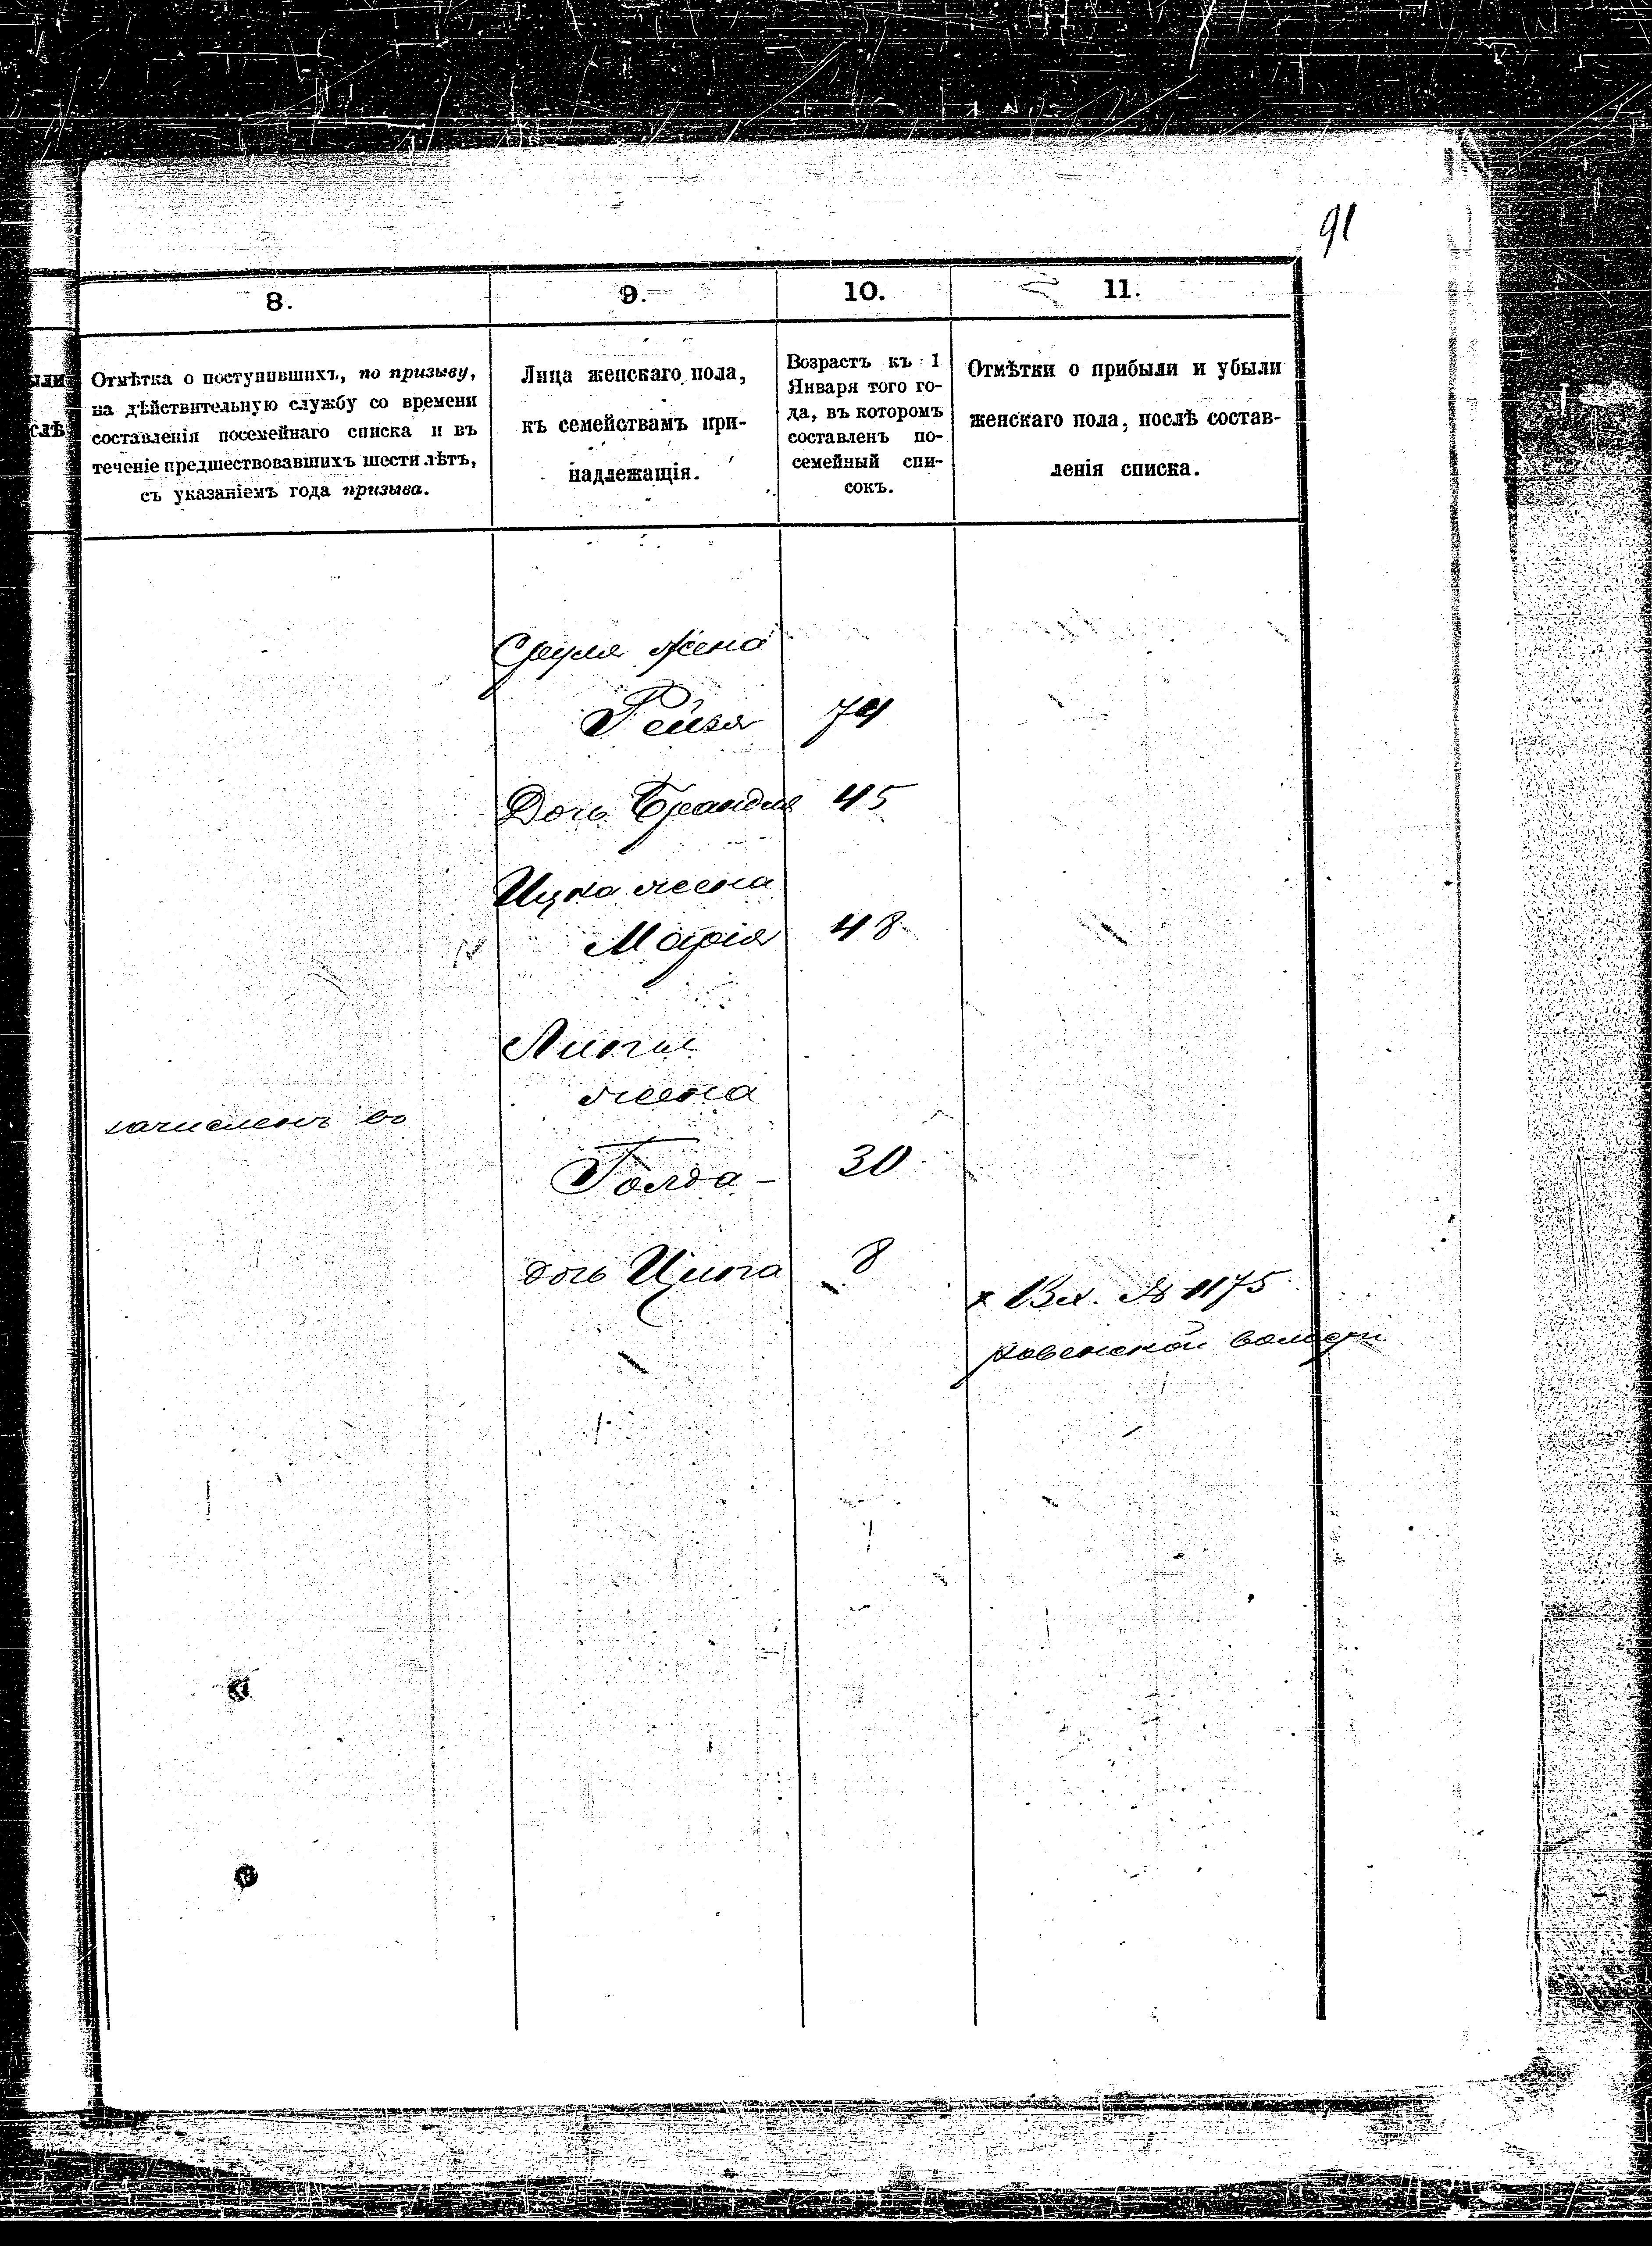 91
8.
9.
10.
11.
ыли
слѣ
Отмѣтка о поступившихъ, по призыву,
на дѣйствительную службу со времени
составленія посемейнаго списка и въ
теченіе предшествовавшихъ шести лѣтъ,
съ указаніемъ года призыва.
Лица женскаго пола,
къ семействамъ при-
надлежащія.
Возрастъ къ 1
Января того го-
да, въ которомъ
составленъ по-
семейный спи-
сокъ.
Отмѣтки о прибыли и убыли
женскаго пола, послѣ состав-
ленія списка.
Сруля жена
Рейзя 74
Дочь Брандля 45
Ицка жена
Марія 48
жена
зачисленъ въ
Голда 30
дочь Ципа 8
х Вх. № 1175
ковенской волости